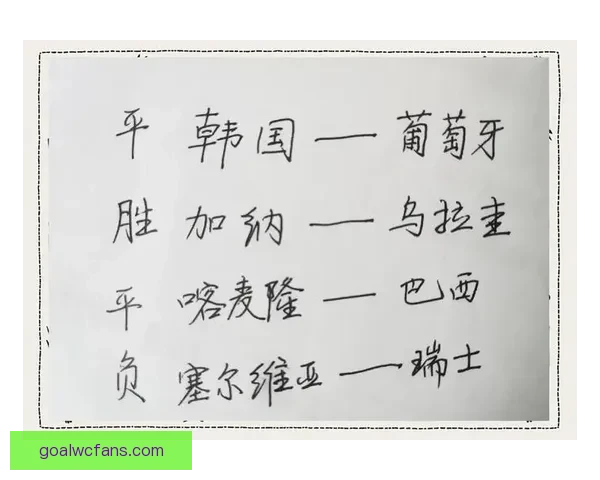 平 韩国 — 葡萄牙
胜 加纳 — 乌拉圭
平 喀麦隆 — 巴西
负 塞尔维亚 — 瑞士
goalwcfans.com